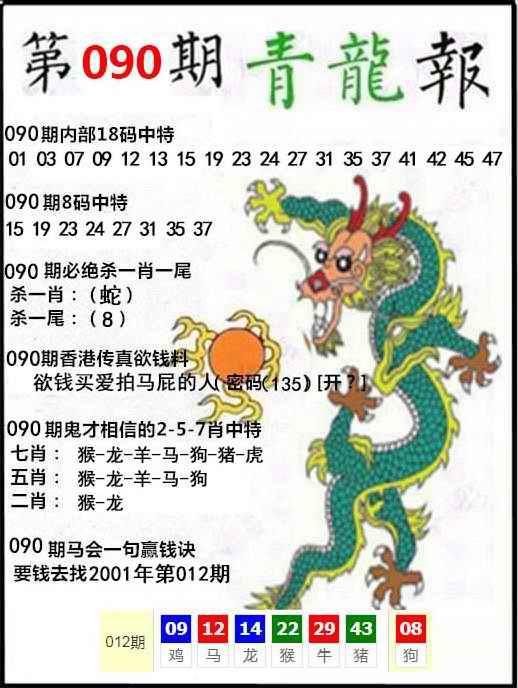 第090期青龍報
090期内部18码中特
01 03 07 09 12 13 15 19 23 24 27 31 35 37 41 42 45 47
090期8码中特
15 19 23 24 27 31 35 37
090 期必绝杀一肖一尾
杀一肖：（蛇）
杀一尾：（8）
090期香港传真欲钱料
欲钱买爱拍马屁的人( 密码(135) [开？]
090期鬼才相信的2-5-7肖中特
七肖： 猴-龙-羊-马-狗-猪-虎
五肖： 猴-龙-羊-马-狗
二肖： 猴-龙
090 期马会一句赢钱诀
要钱去找2001年第012期
012期 09 12 14 22 29 43 08
鸡 马 龙 猴 牛 猪 狗